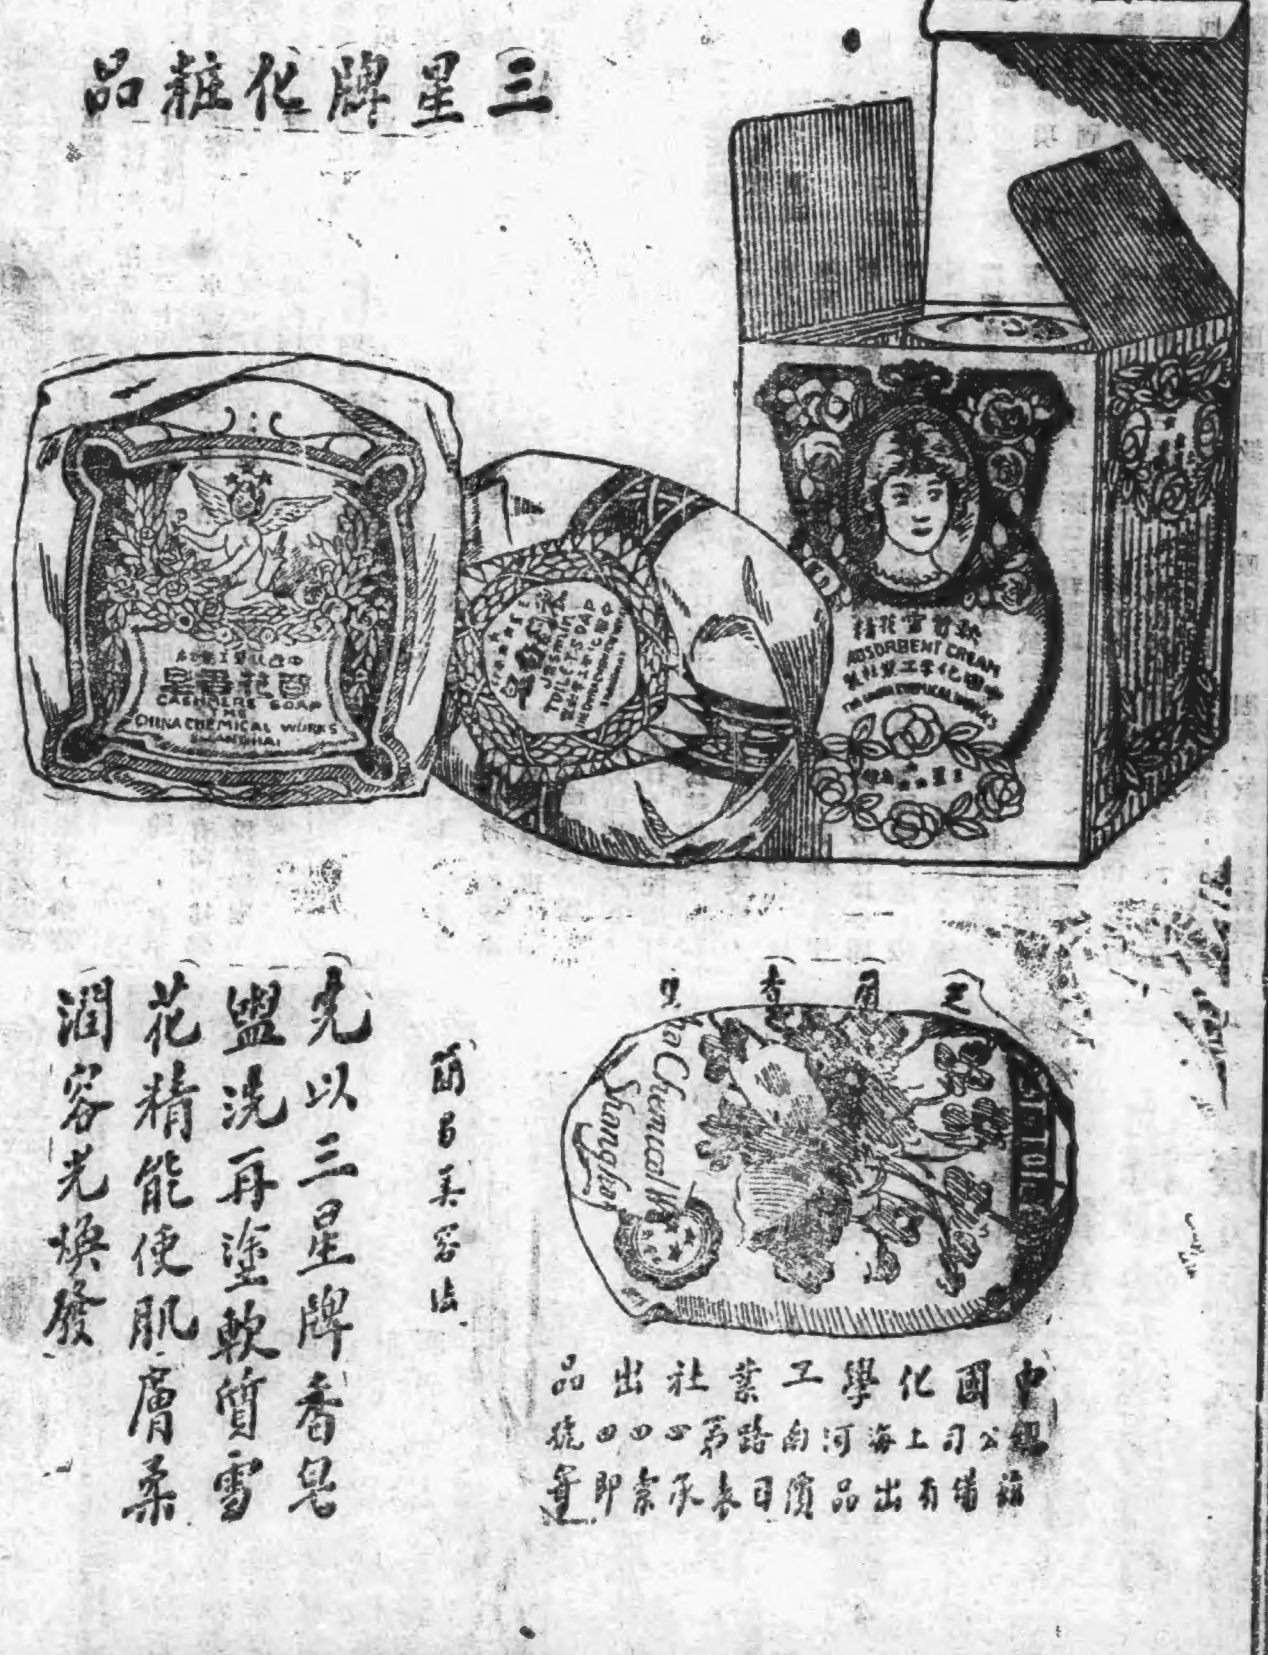 三星牌化粧品
百花香皂
CASHMERE SOAP
THE
CHINA CHEMICAL WORKS
SHANGHAI
Jasmin
TOILET SOAP
ABSORBENT CREAM
中國化學工業社製
THE CHINA CHEMICAL WORKS
三星
芝蘭香皂
China Chemical Wks
Shanghai
簡易美容法
先以三星牌香皂
盥洗再塗軟質雪
花精能使肌膚柔
潤容光煥發
中國化學工業社出品
總公司上海河南路第四四四號
備有出品價目表承索即寄